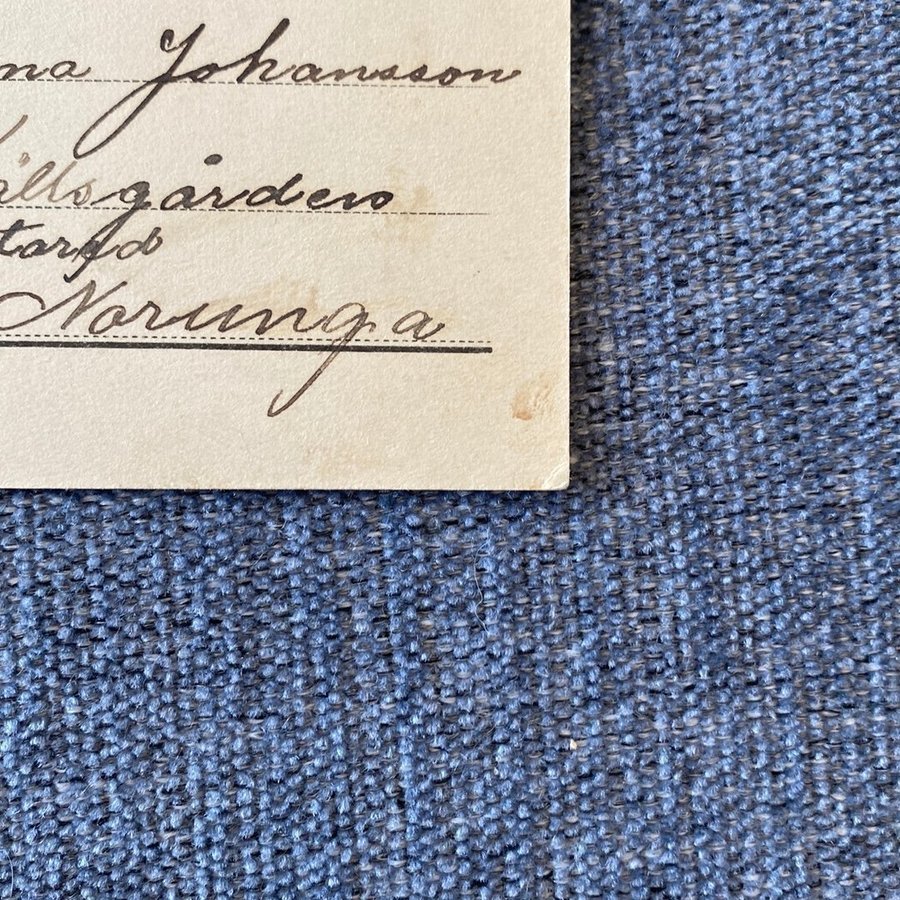 na Johansson
ällsgården
tared
Norunga